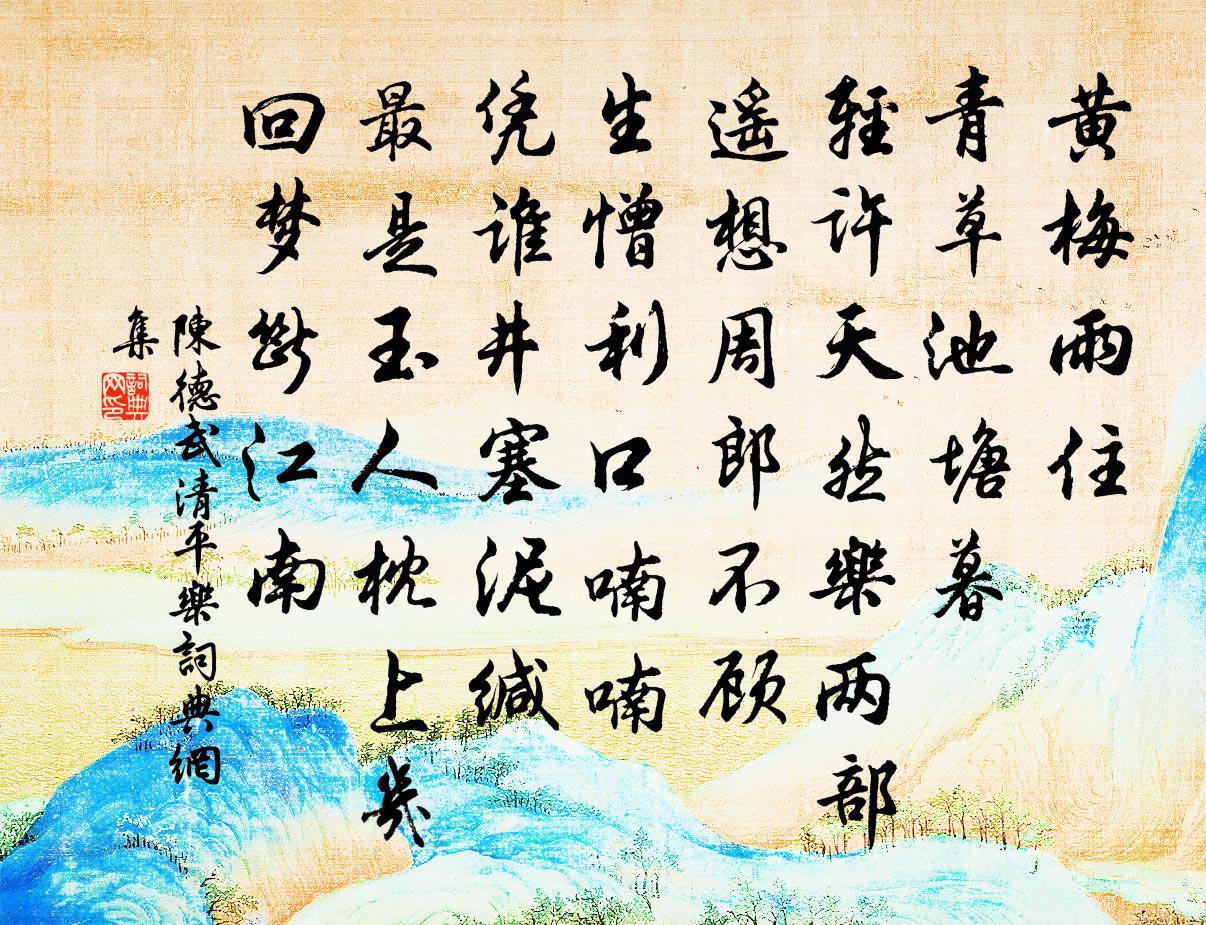 黄梅雨住
青草池塘暮
輕许天然樂两部
遥想周郎不顾
生憎利口喃喃
凭谁井塞泥缄
最是玉人枕上幾
回梦斷江南
陳德武清平樂詞典網
集
詞典網印